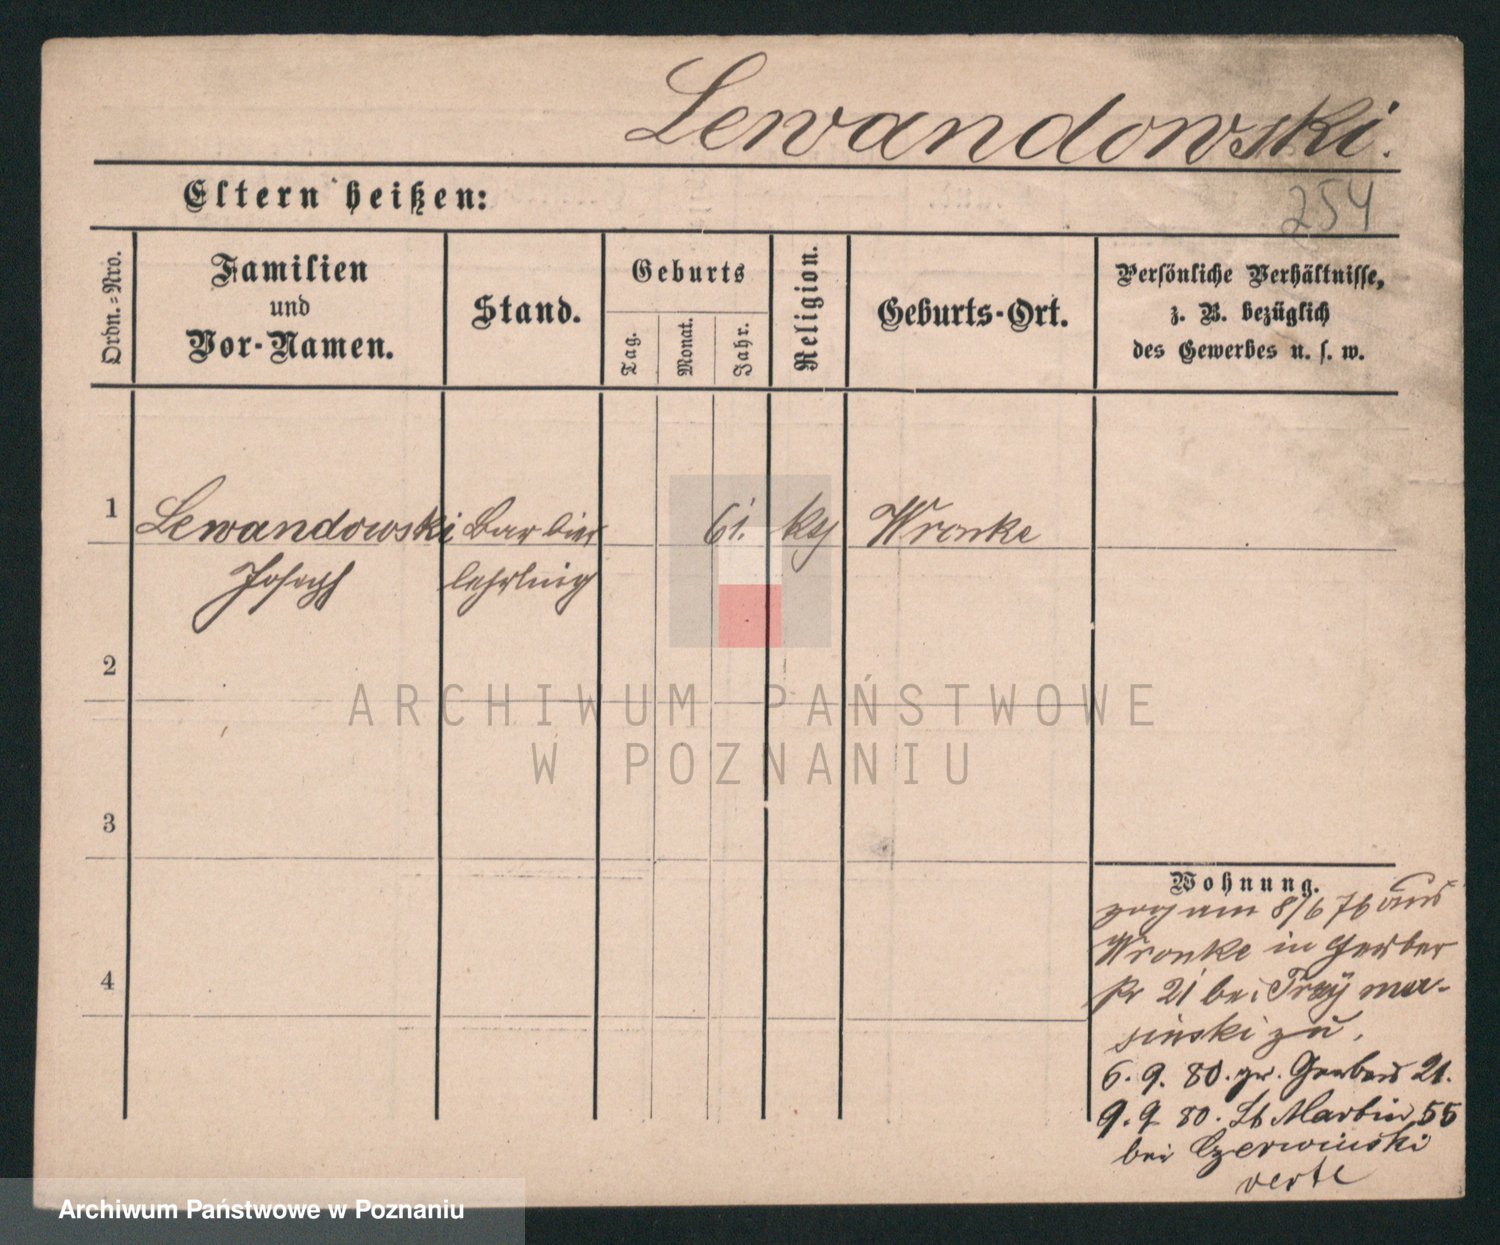 Lewandowski.
Eltern heißen:
254
Ordn.=Nro.
Familien
und
Vor-Namen.
Stand.
Geburts
Tag.
Monat.
Jahr.
Religion.
Geburts-Ort.
Persönliche Verhältnisse,
z. B. bezüglich
des Gewerbes u. s. w.
1
Lewandowski
Joseph
Barbier
lehrling
61.
Wronke
2
ARCHIWUM PAŃSTWOWE
W POZNANIU
3
4
Wohnung.
zog am 8/6 76 aus
Wronke in Gerber
21 bei
sinski zu.
6. 9. 80. gr. Gerber 21.
9. 9 80. St Martin 55
bei Czerwinski
verte
Archiwum Państwowe w Poznaniu